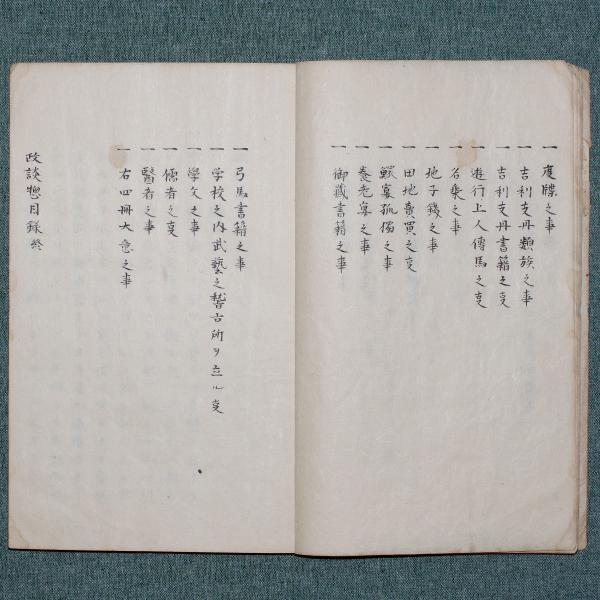 一 度牒之事
一 吉利支丹類族之事
一 吉利支丹書籍之叓
一 遊行上人傳馬之叓
一 名乗之事
一 地子錢之事
一 田地賣買之叓
一 鰥寡孤獨之事
一 養老宴之事
一 御藏書籍之事
一 弓馬書籍之事
一 学校之内武藝之稽古所ヲ立ル叓
一 學文之事
一 儒者之叓
一 醫者之事
一 右四冊大意之事
政談惣目録終